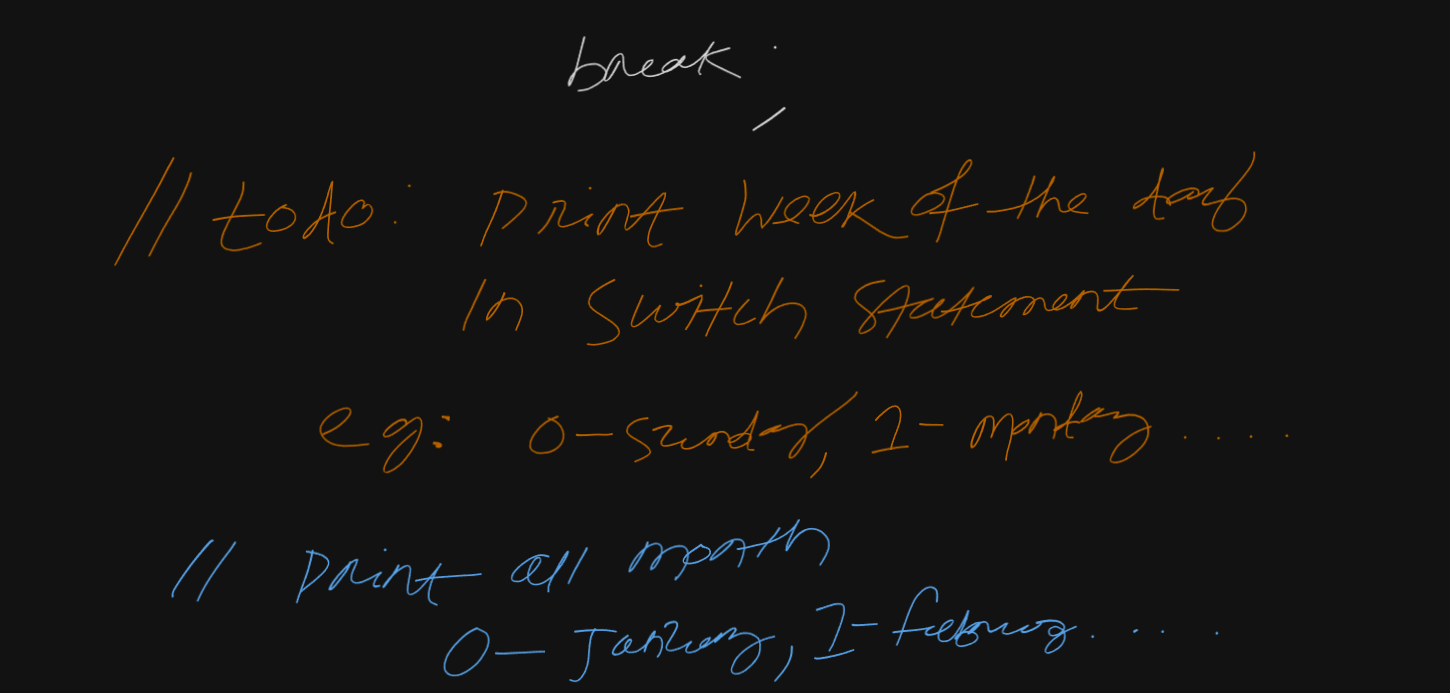 break ;
// todo: Print week of the day
in switch statement
eg: 0-sunday, 1-monday ....
// Print all month
0- January, 1-february....